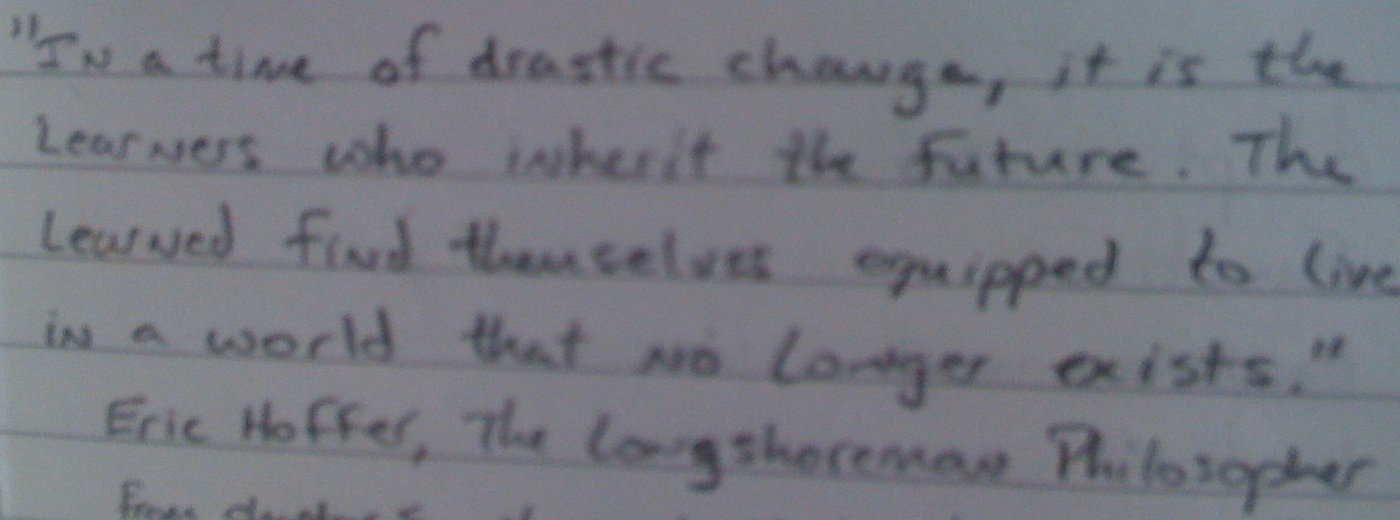 "In a time of drastic change, it is the
Learners who inherit the future. The
Learned find themselves equipped to live
in a world that no longer exists."
Eric Hoffer, The Longshoreman Philosopher
From